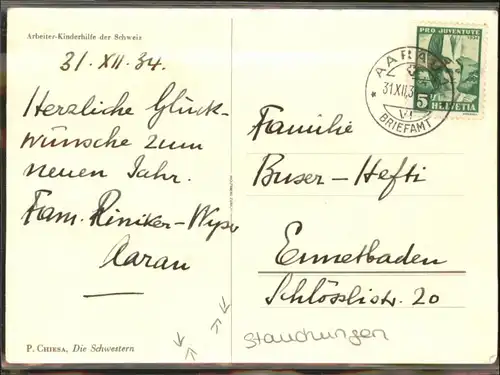 Arbeiter-Kinderhilfe der Schweiz
31. XII. 34.
Herzliche Glück-
wünsche zum
neuen Jahr.
Fam. Riniker-Wyser
Aarau
P. CHIESA, Die Schwestern
PRO JUVENTUTE
1934
5
HELVETIA
AARAU
31.XII.3
VI
BRIEFAMT
Familie
Buser-Hefti
Ennetbaden
Schlösslistr. 20
Stauchungen